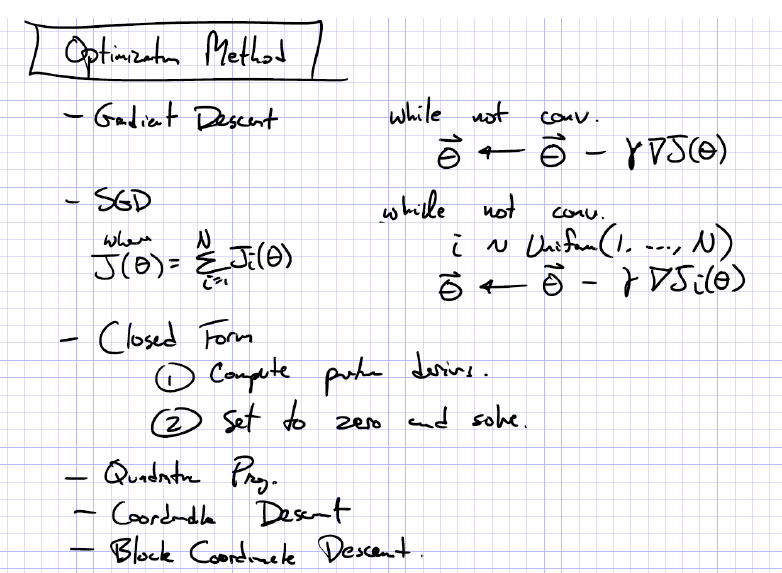 Optimization Method
- Gradient Descent
while not conv.
θ⃗ ← θ⃗ - γ∇J(θ)
- SGD
where
J(θ) = Σ_{i=1}^{N} J_i(θ)
while not conv.
i ~ Uniform(1, ..., N)
θ⃗ ← θ⃗ - γ∇J_i(θ)
- Closed Form
① Compute partial derivs.
② Set to zero and solve.
- Quadratic Prog.
- Coordinate Descent
- Block Coordinate Descent.